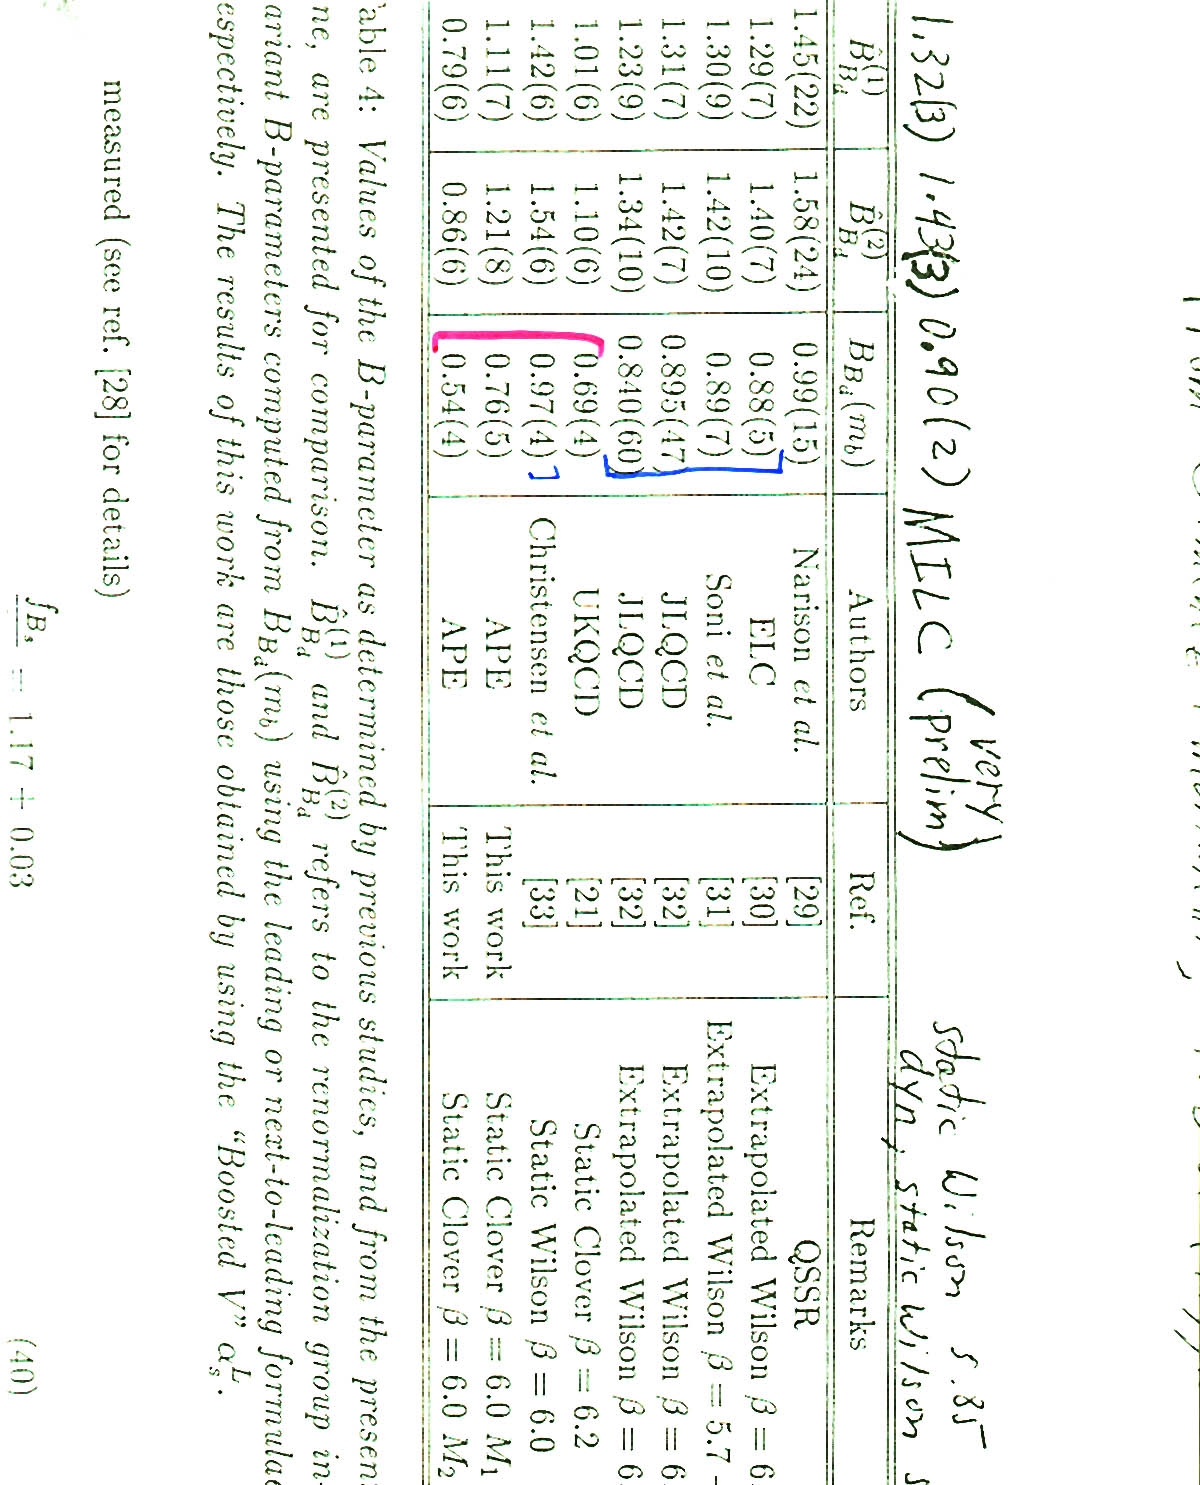 static Wilson 5.85
1.32(3) 1.43(3) 0.90(2) MILC (very prelim) dyn, static Wilson
B̂_{B_d}^{(1)} B̂_{B_d}^{(2)} B_{B_d}(m_b) Authors Ref. Remarks
1.45(22) 1.58(24) 0.99(15) Narison et al. [29] QSSR
1.29(7) 1.40(7) 0.88(5) ELC [30] Extrapolated Wilson β = 6.
1.30(9) 1.42(10) 0.89(7) Soni et al. [31] Extrapolated Wilson β = 5.7 -
1.31(7) 1.42(7) 0.895(47 JLQCD [32] Extrapolated Wilson β = 6.
1.23(9) 1.34(10) 0.840(60) JLQCD [32] Extrapolated Wilson β = 6.
1.01(6) 1.10(6) 0.69(4) UKQCD [21] Static Clover β = 6.2
1.42(6) 1.54(6) 0.97(4) Christensen et al. [33] Static Wilson β = 6.0
1.11(7) 1.21(8) 0.76(5) APE This work Static Clover β = 6.0 M₁
0.79(6) 0.86(6) 0.54(4) APE This work Static Clover β = 6.0 M₂
able 4: Values of the B-parameter as determined by previous studies, and from the presen
ne, are presented for comparison. B̂_{B_d}^{(1)} and B̂_{B_d}^{(2)} refers to the renormalization group in-
ariant B-parameters computed from B_{B_d}(m_b) using the leading or next-to-leading formulae
espectively. The results of this work are those obtained by using the “Boosted V” α_s^L.
measured (see ref. [28] for details)
f_{B_s} = 1.17 ± 0.03 (40)